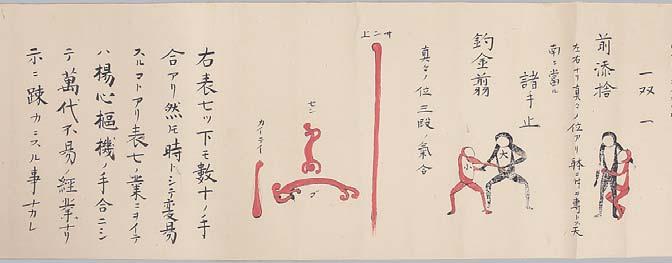 一双一
前添捨
左右ナリ真々ノ位アリ 專トス天
南ニ當ル
諸手止
釣金翦
大
小
真々ノ位三段ノ氣合
上
セン
右表七ツ下モ數十ノ手
合アリ然𪜈時トシテ変易
スルコトアリ表七ノ業ニヲイテ
ハ楊心樞機ノ手合ニシ
テ萬代不易ノ經業ナリ
示ニ踈カニスル事ナカレ